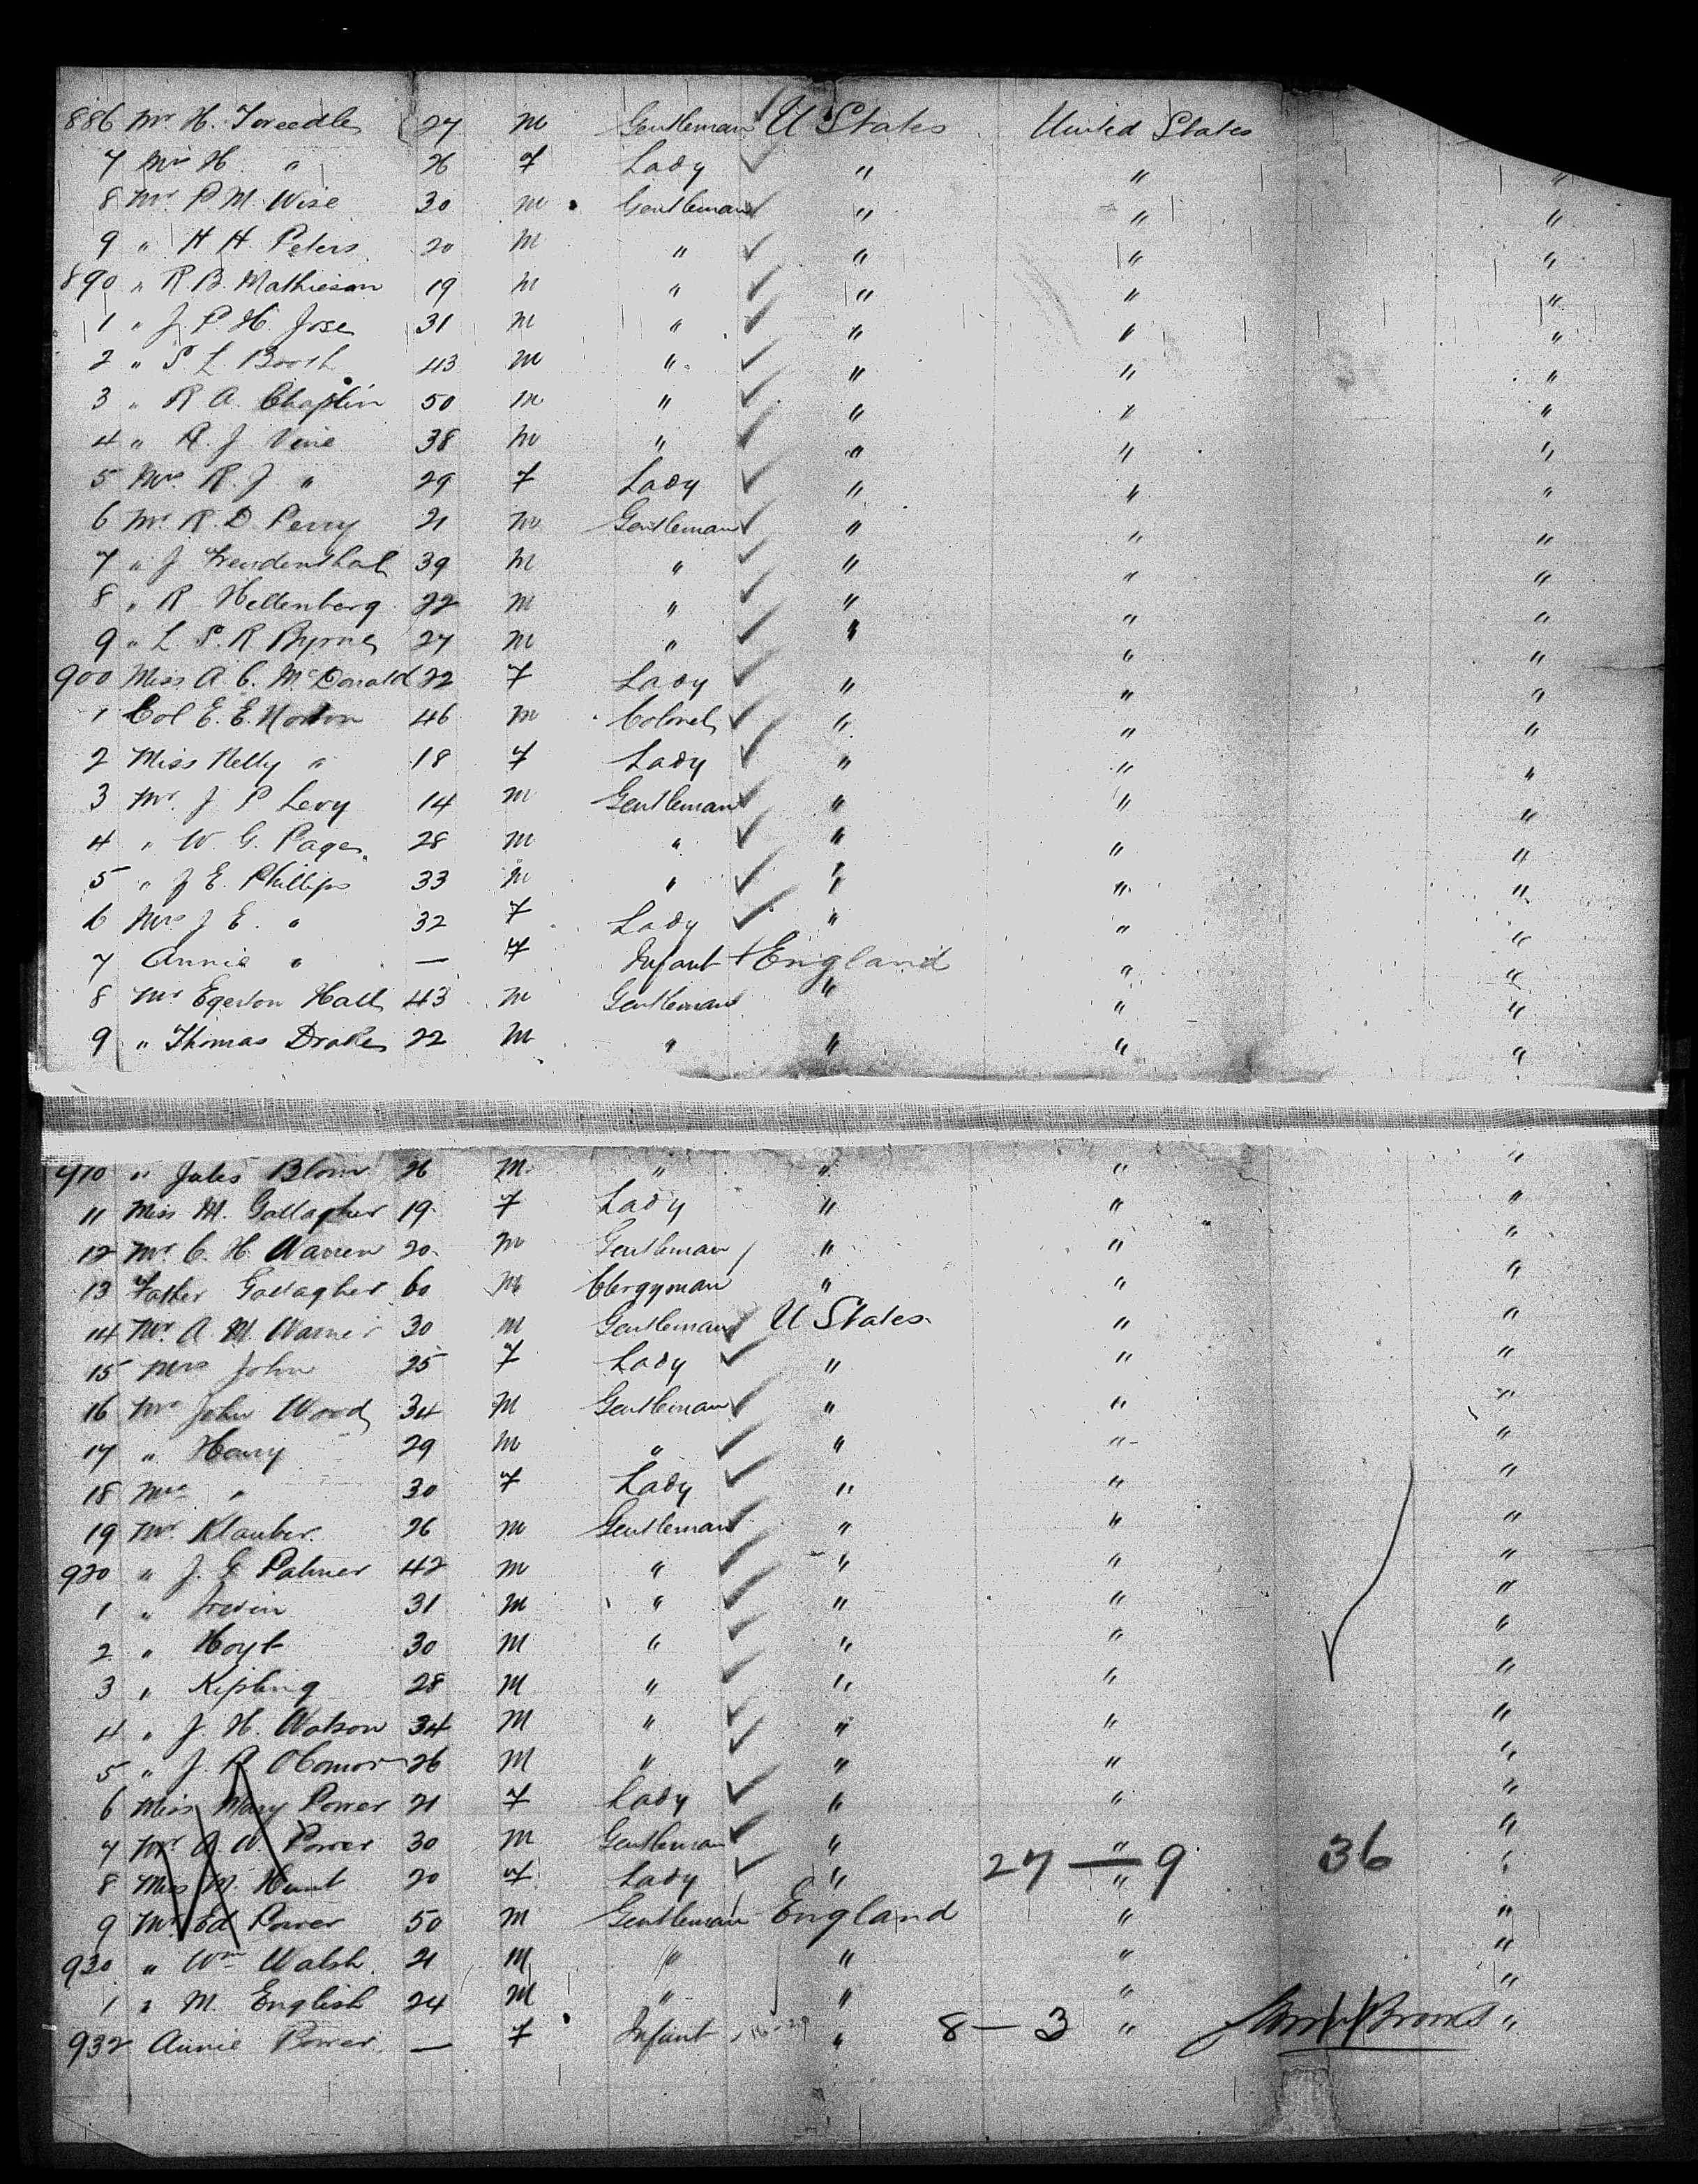 886 Mr H. Tweedle 27 M Gentleman U States United States
7 Mrs H. " 26 F Lady " " "
8 Mr P. M. Wise 30 M Gentleman " " "
9 " H. H. Peters 20 M " " " "
890 " R. B. Mathieson 19 M " " " "
1 " J. P. H. Jose 31 M " " " "
2 " S. L. Booth 43 M " " " "
3 " R. A. Chaplin 50 M " " " "
4 " R. J. Vine 38 M " " " "
5 Mrs R. J " 29 F Lady " " "
6 Mr R. D. Perry 21 M Gentleman " " "
7 " J Freudenthal 39 M " " " "
8 " R Hellenberg 22 M " " " "
9 " L. S. R Byrne 27 M " " " "
900 Miss A. C. McDonald 22 F Lady " " "
1 Col E. E. Norton 46 M Colonel " " "
2 Miss Nelly " 18 F Lady " " "
3 Mr. J P Levy 14 M Gentleman " " "
4 " W. G. Page 28 M " " " "
5 " J E. Phillips 33 M " " " "
6 Mrs J E. " 32 F Lady " " "
7 Annie " — F Infant + England " "
8 Mr Egerton Hall 43 M Gentleman " " "
9 " Thomas Drake 22 M " " " "
910 " Jules Blom 26 M " " " "
11 Miss M. Gallagher 19 F Lady " " "
12 Mr C. H. Warren 20 M Gentleman " " "
13 Father Gallagher 60 M Clergyman " " "
14 Mr A. M. Warner 30 M Gentleman U States " "
15 Mrs John 25 F Lady " " "
16 Mr John Wood 34 M Gentleman " " "
17 " Henry 29 M " " " "
18 Mrs " 30 F Lady " " "
19 Mr. Klauber 26 M Gentleman " " "
920 " J. G. Palmer 42 M " " " "
1 " Irwin 31 M " " " "
2 " Hoyt 30 M " " " "
3 " Kipling 28 M " " " "
4 " J. H. Watson 34 M " " " "
5 " J. R OConnor 26 M " " " "
6 Miss Mary Power 21 F Lady " " "
7 Mr A W. Power 30 M Gentleman " " "
8 Miss M. Hunt 20 F Lady " 27 — 9 " 36 "
9 Mr Ed Power 50 M Gentleman England " "
930 " Wm Walsh 21 M " " " "
1 " M. English 24 M " " " "
932 Annie Power — F Infant " 8 — 3 " "